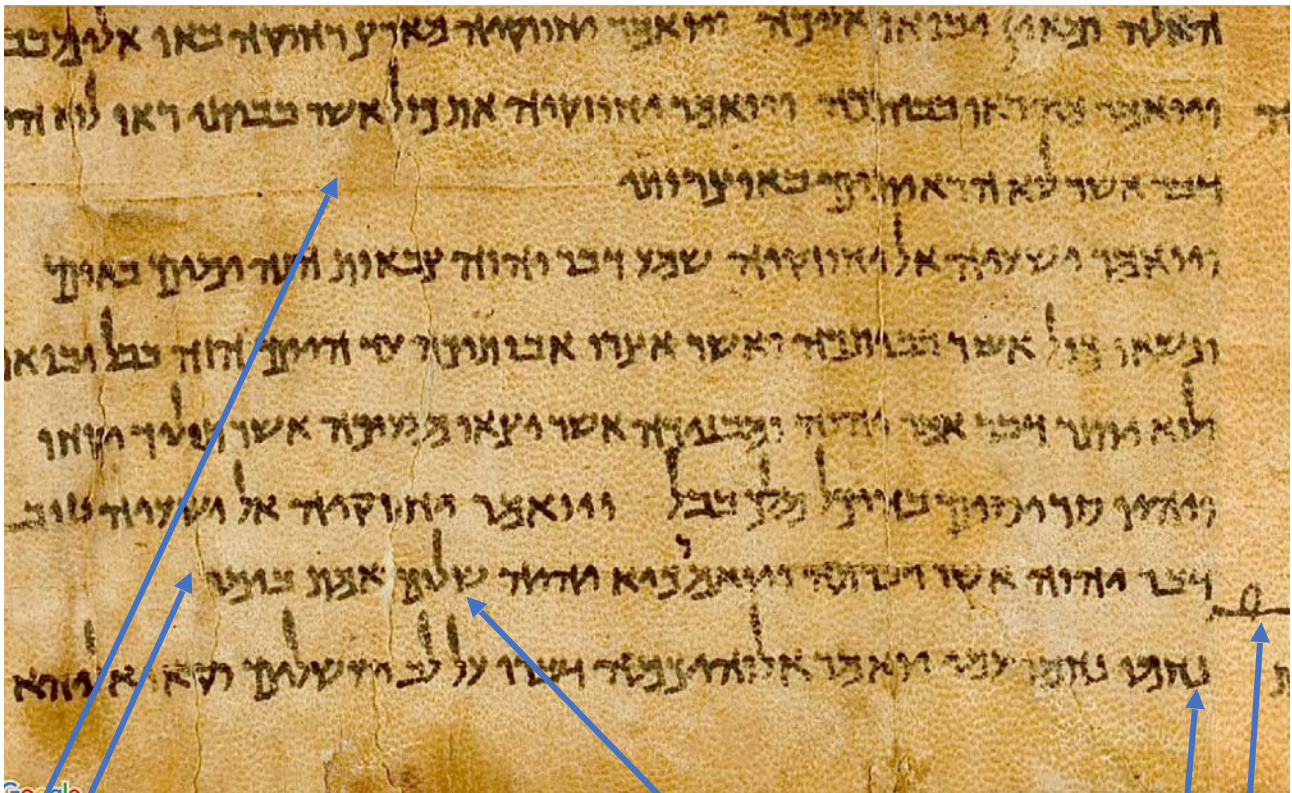 האלה ומאין יבואו אליכה ויואמר יחזקיה מארץ רחוקה באו אלי מבב
ויואמר מה ראו בביתכה ויואמר יחוזקיה את כול אשר בביתי ראו לוא היה
דבר אשר לא הראיתים באוצרותי
ויואמר ישעיה אל יחוזקיה שמע דבר יהוה צבאות הנה ימים באים
ונשאו כול אשר בביתכה ואשר אצרו אבותיכה עד היום הזה בבל יבואו
ולוא יותר דבר אמר יהוה ומבניכה אשר יצאו ממעיכה אשר תוליד יקחו
ויהיו סריסים בהיכל מלך בבל ויואמר יחזקיה אל ישעיה טוב
דבר יהוה אשר דברתה ויואמר כיא יהיה שלום אמת בימי
נחמו נחמו עמי יואמר אלוהיכמה דברו על לב ירושלים וקראו אליהא
Google